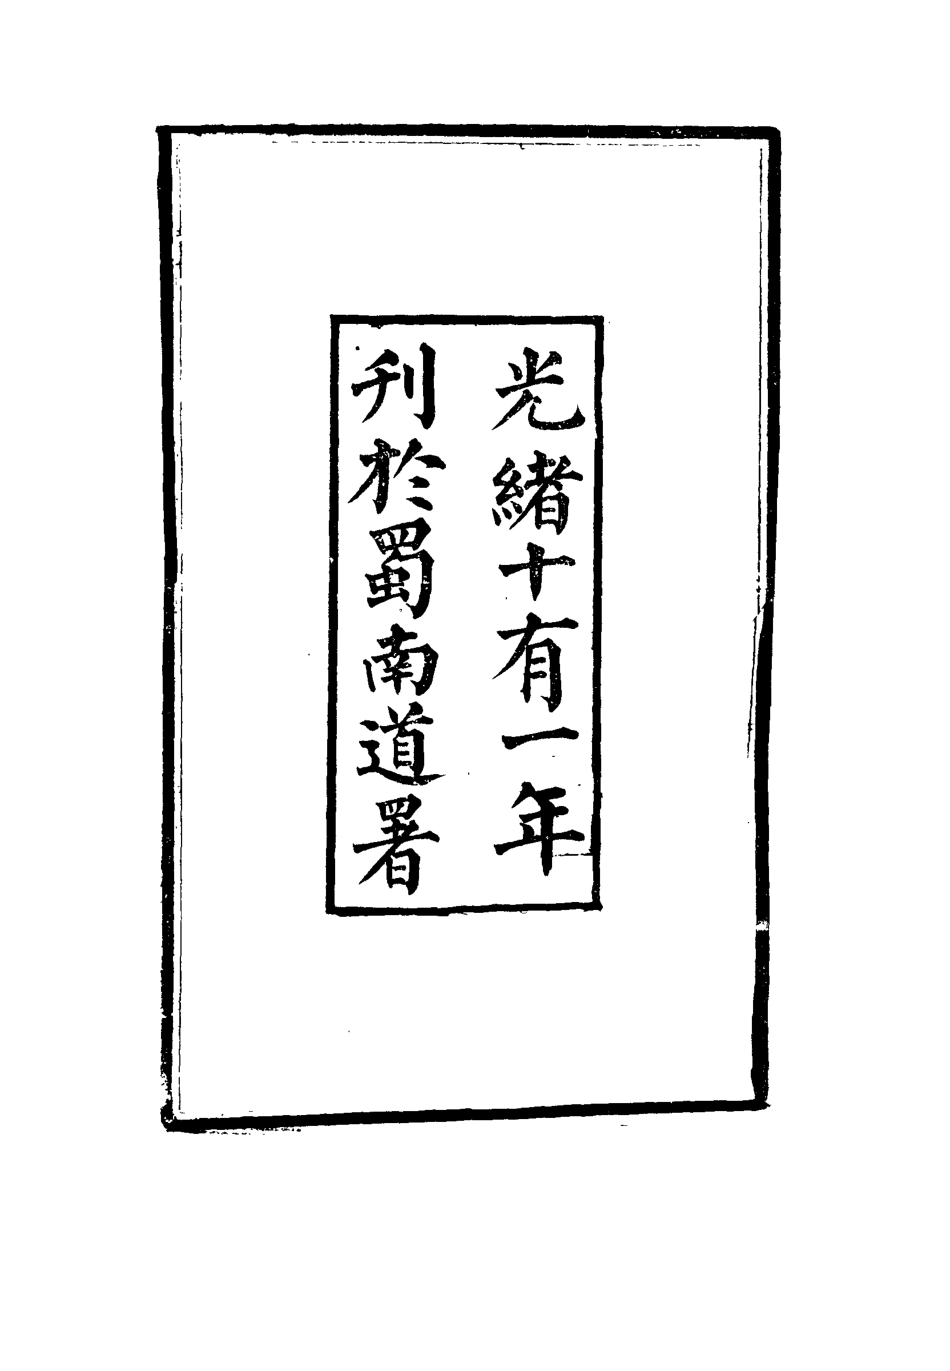 光緒十有一年
刊於蜀南道署